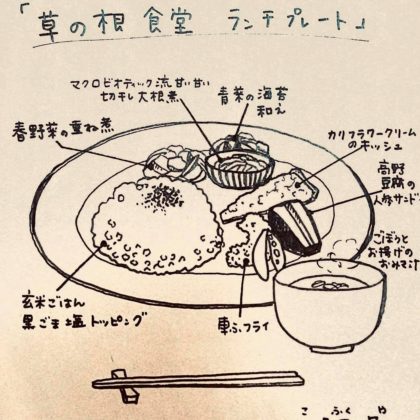 「草の根 食堂 ランチプレート」
マクロビオティック流 甘い甘い
切干し大根煮
青菜の海苔
和え
春野菜の重ね煮
カリフラワークリーム
のキッシュ
高野
豆腐の
人参サンド
ごぼうと
お揚げの
おみそ汁
玄米ごはん
黒ごま塩トッピング
車ふフライ
こ ふく や